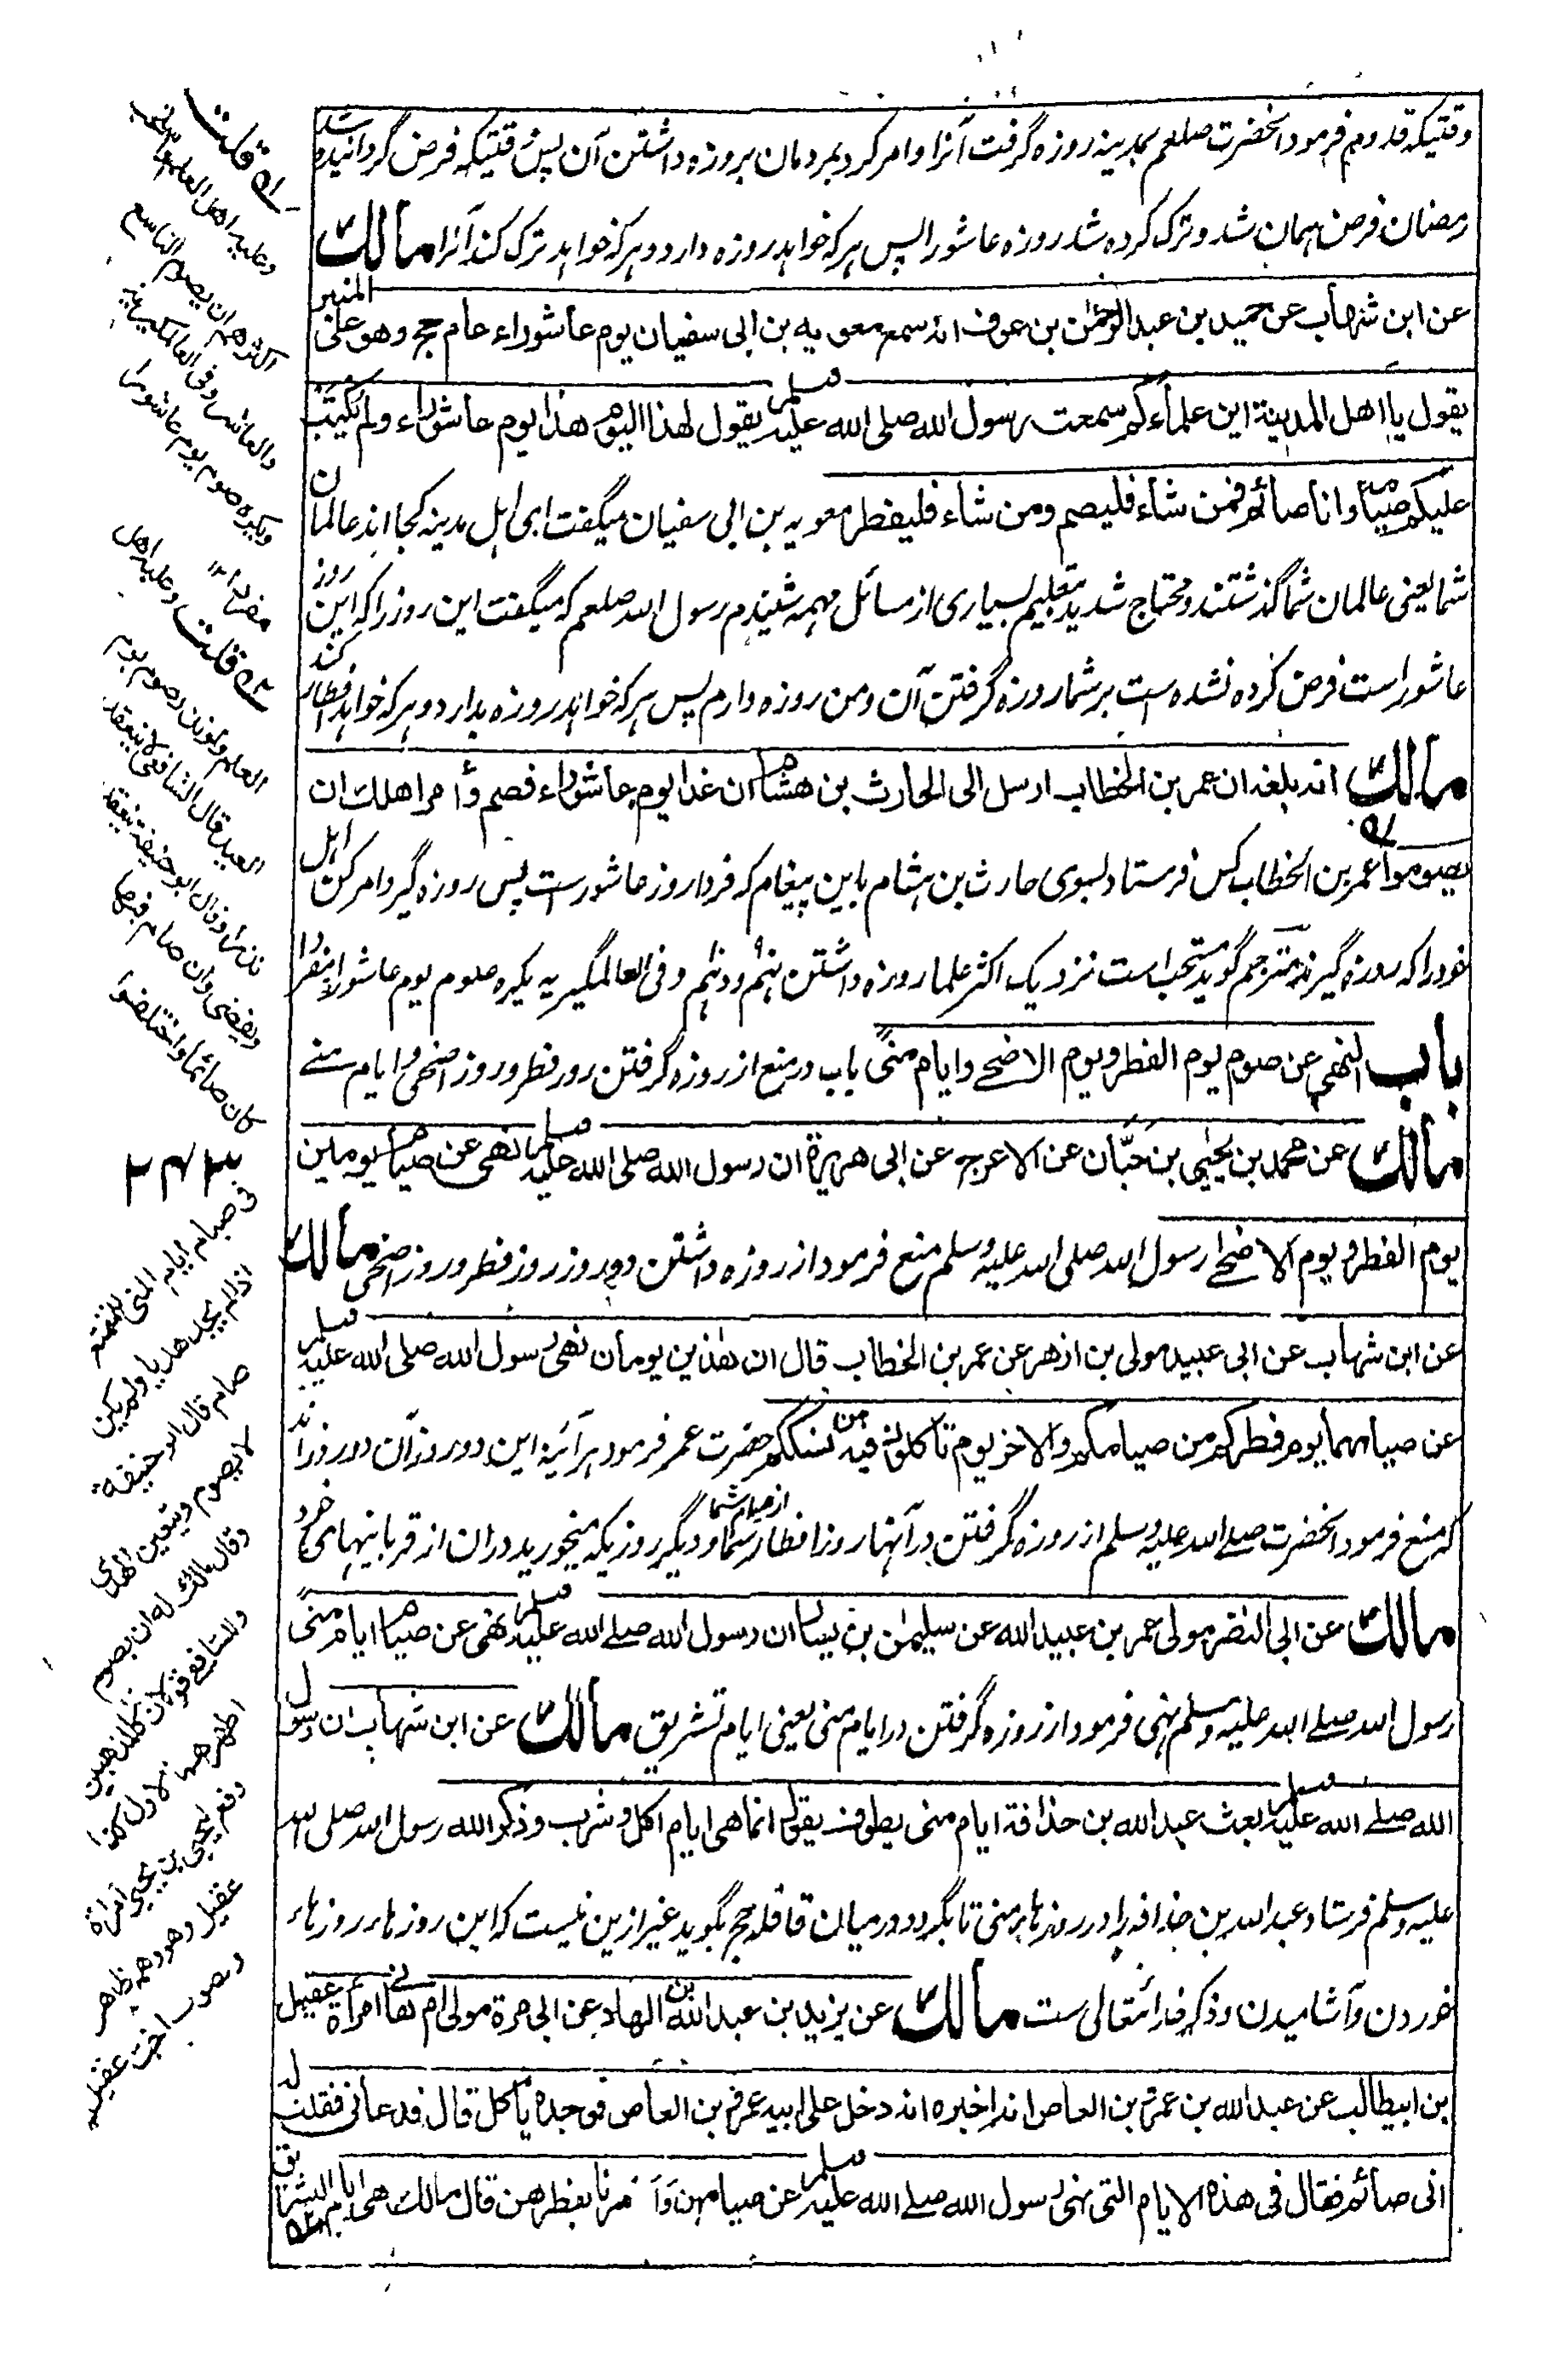 وقتیکه قدوم فرمود آنحضرت صلعم بمدینه روزه گرفت آنرا و امر کرد بمردمان بروزه داشتن آن پس وقتیکه فرض گردانیده شد
رمضان فرض همان شد و ترک کرده شد روزه عاشورا پس هر که خواهد روزه دارد و هر که خواهد ترک کند آنرا مالك
عن ابن شهاب عن حميد بن عبد الرحمن بن عوف انه سمع معوية بن ابى سفيان يوم عاشوراء عام حج وهو على المنبر
يقول يا اهل المدينة اين علماءكم سمعت رسول الله صلى الله عليه وسلم يقول لهذا اليوم هذا يوم عاشوراء ولم يكتب
عليكم صيامه وانا صائم فمن شاء فليصم ومن شاء فليفطر معویه بن ابی سفیان میگفت ای اهل مدینه کجا اند عالمان
شما یعنی عالمان شما گذشتند و محتاج شدید بتعلیم بسیاری از مسائل مهمه شنیدم رسول الله صلعم که میگفت این روز را که این روز
عاشورا ست فرض کرده نشده است بر شما روزه گرفتن آن و من روزه دارم پس هر که خواهد روزه بدارد و هر که خواهد افطار کند
مالك انه بلغه ان عمر بن الخطاب ارسل الى الحارث بن هشام ان غدا يوم عاشوراء فصم وأمر اهلك ان
يصوموا عمر بن الخطاب کس فرستاد بسوی حارث بن هشام باین پیغام که فردا روز عاشورست پس روزه گیر و امر کن اهل
خود را که روزه گیرند مترجم گوید مستحب است نزدیک اکثر علما روزه داشتن نهم و دهم و فی العالمگیریه یکره صوم یوم عاشورا منفردا
باب النهى عن صوم يوم الفطر ويوم الاضحے وايام منى باب در منع از روزه گرفتن روز فطر و روز اضحی و ایام منے
مالك عن محمد بن يحيى بن حبّان عن الاعرج عن ابى هريرة ان رسول الله صلى الله عليه وسلم نهى عن صيام يومين
يوم الفطر ويوم الاضحے رسول الله صلی الله علیه وسلم منع فرمود از روزه داشتن دو روز روز فطر و روز اضحی مالك
عن ابن شهاب عن ابى عبيد مولى بن ازهر عن عمر بن الخطاب قال ان هذين يومان نهى رسول الله صلى الله عليه وسلم
عن صيامهما يوم فطركم من صيامكم والآخر يوم تأكلون فيه من نسككم حضرت عمر فرمود هر آئینه این دو روز آن دو روز اند
که منع فرمود آنحضرت صلے الله علیه وسلم از روزه گرفتن در آنها روز افطار شما از صیام شما و دیگر روزیکه میخورید دران از قربانیهای خود
مالك عن ابى النضر مولى عمر بن عبيد الله عن سليمن بن يسار ان رسول الله صلے الله عليه وسلم نهى عن صيام ايام منى
رسول الله صلے الله علیه وسلم نهی فرمود از روزه گرفتن در ایام منی یعنی ایام تشریق مالك عن ابن شهاب ان رسول
الله صلے الله عليه وسلم بعث عبد الله بن حذافة ايام منى يطوف يقول انما هى ايام اكل وشرب وذكر الله رسول الله صلی الله
علیه وسلم فرستاد عبد الله بن حذافه را در روزهای منی تا بگردد در میان قافله حج بگوید غیر ازین نیست که این روزها روزهاء
خوردن و آشامیدن و ذکر خدائتعالی ست مالك عن يزيد بن عبد الله بن الهاد عن ابى مرة مولى ام هانے امرأة عقيل
بن ابيطالب عن عبد الله بن عمرو بن العاص انه اخبره انه دخل على ابيه عمرو بن العاص فوجده يأكل قال فدعانى فقلت له
انى صائم فقال فى هذه الايام التى نهى رسول الله صلے الله عليه وسلم عن صيامهن وآمرنا بفطرهن قال مالك هى ايام التشريق
قلت
وعليه اهل العلم
اكثرهم ان يصوم التاسع
والعاشر وفى العالمگيرية
ويكره صوم يوم عاشورا
مفردا ١٢
قلت وعليه اهل
العلم
العيد قال الشافعى لا ينعقد
نذره وقال ابو حنيفة ينعقد
ويقضى وان صام فيها
كان صائما واختلفوا
فى صيام ايام المنى للمتمتع
اذا لم يجد هديا ولم يكن
صام قال ابو حنيفة
لا يصوم ويتعين الهدى
وقال مالك له ان يصوم
وللشافعے قولان كالمذهبين
اظهرهما الاول كذا
وقع ليحيى بن يحيى امرأة
عقيل وهو وهم ظاهر
وصوب اخت عقيل